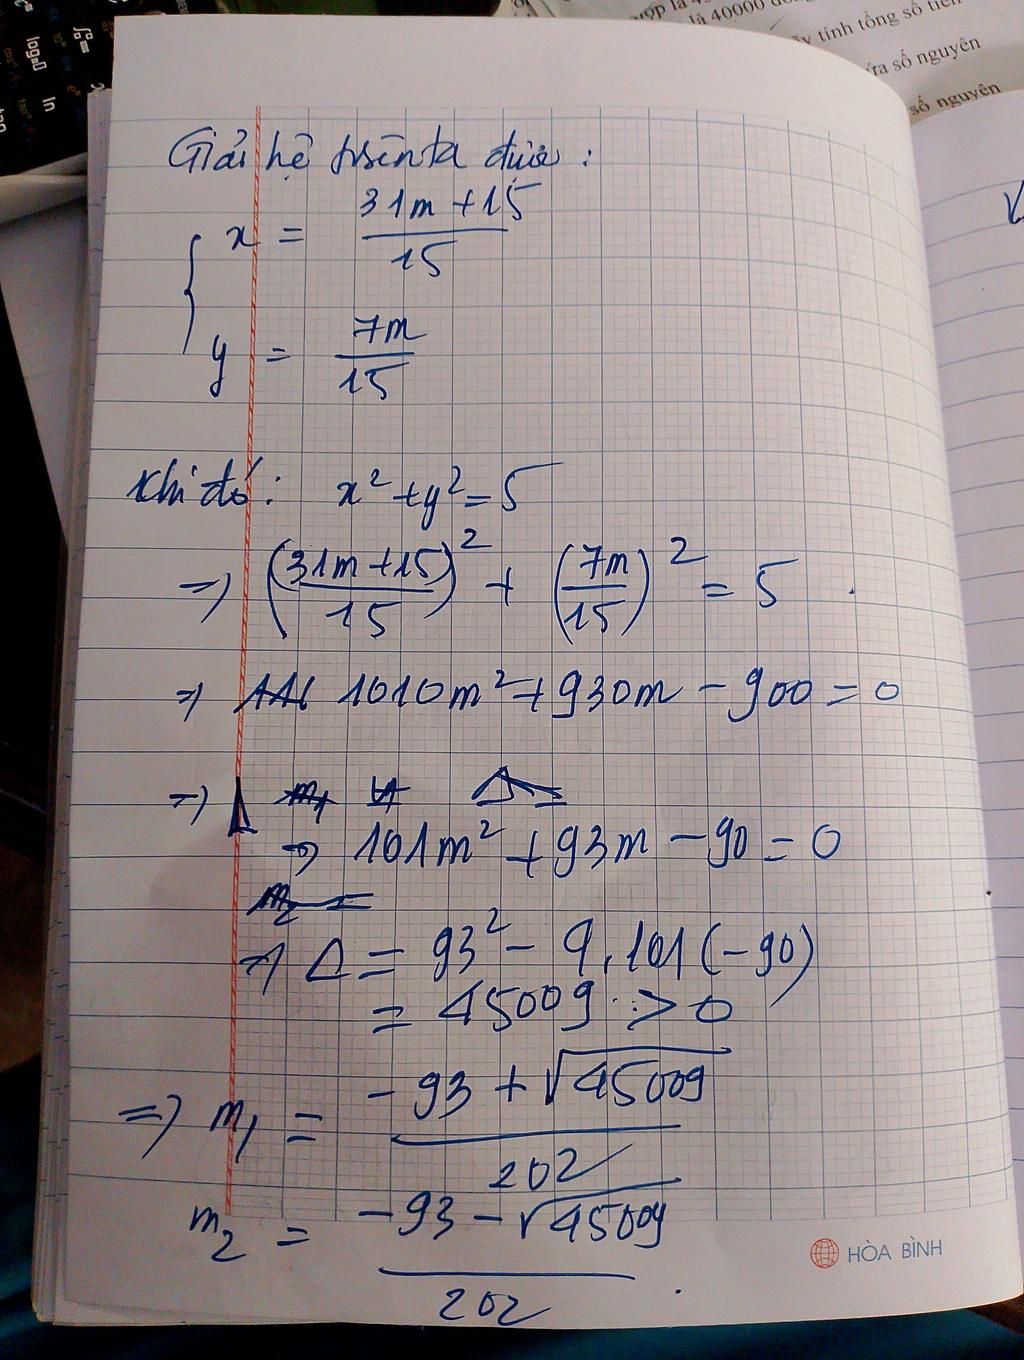 log
ln
ộp là
là 40000 đồng
tính tổng số tiền
ừa số nguyên
số nguyên
Giải hệ trên ta được :
{ x = (31m + 15)/15
y = 7m/15
Khi đó : x² + y² = 5
=> ((31m + 15)/15)² + (7m/15)² = 5
=> 1010m² + 930m - 900 = 0
=>
=> 101m² + 93m - 90 = 0
=> Δ = 93² - 4.101(-90)
= 45009 > 0
=> m₁ = (-93 + √45009)/202
m₂ = (-93 - √45009)/202
HÒA BÌNH